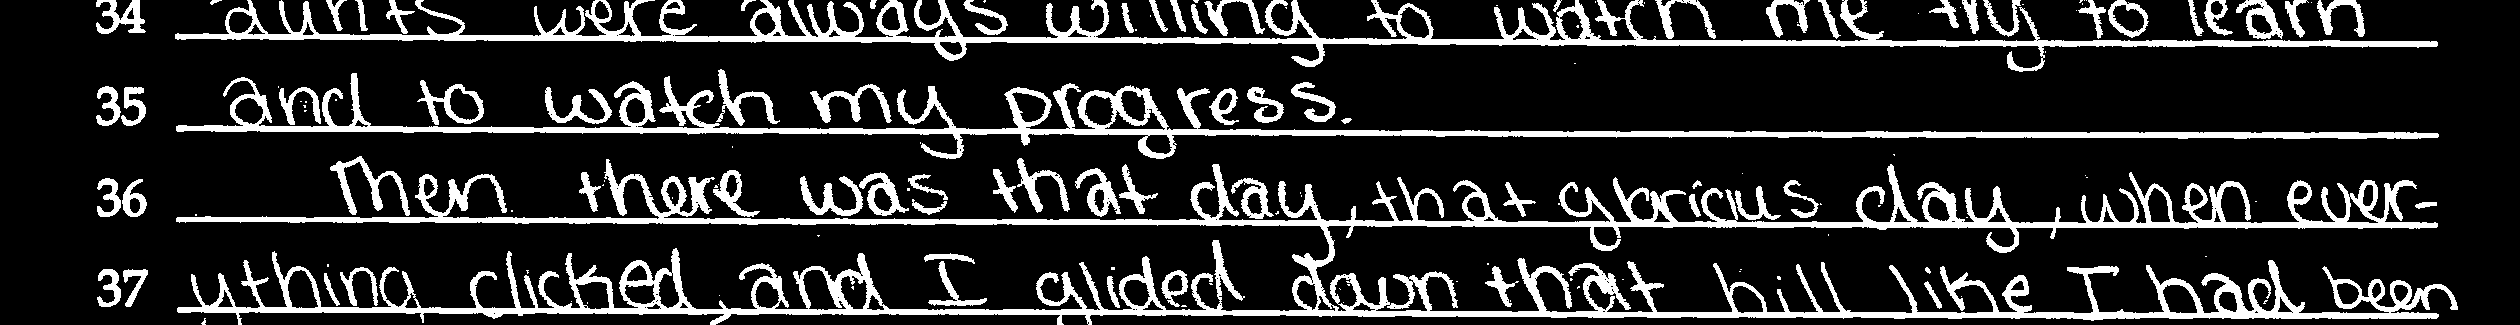 34 aunts were always willing to watch me try to learn
35 and to watch my progress.
36 Then there was that day, that glorious day, when ever-
37 ything clicked, and I glided down that hill like I had been